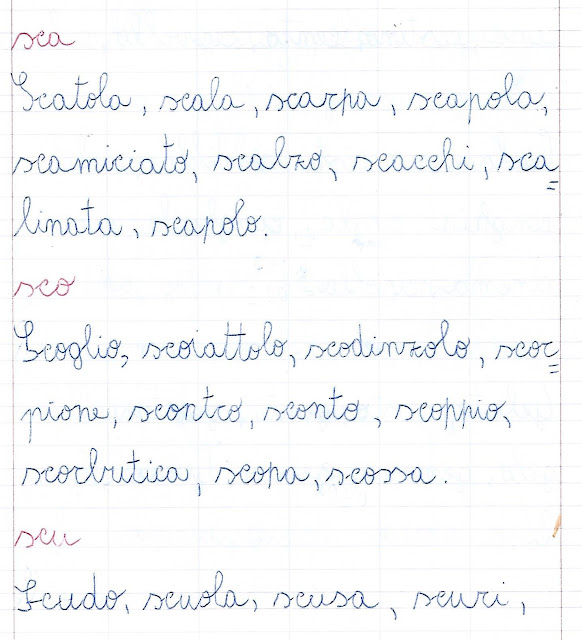 sca
Scatola, scala, scarpa, scapola,
scamiciato, scalzo, scacchi, sca=
linata, scapolo.
sco
Scoglio, scoiattolo, scodinzolo, scor=
pione, scontro, sconto, scoppio,
scorbutica, scopa, scossa.
scu
Scudo, scuola, scusa, scuri,